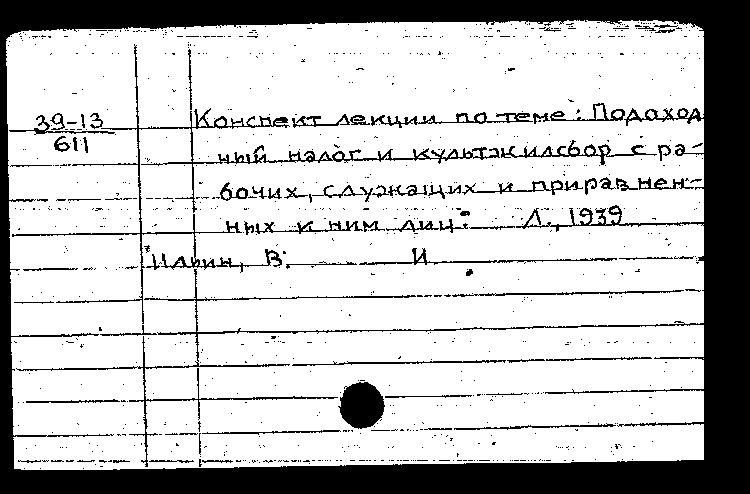 39-13
611
Конспект лекции по теме: Подоход
ный налог и культжилсбор с ра-
бочих, служащих и приравнен-
ных к ним лиц. Л., 1939
Ильин, В. И